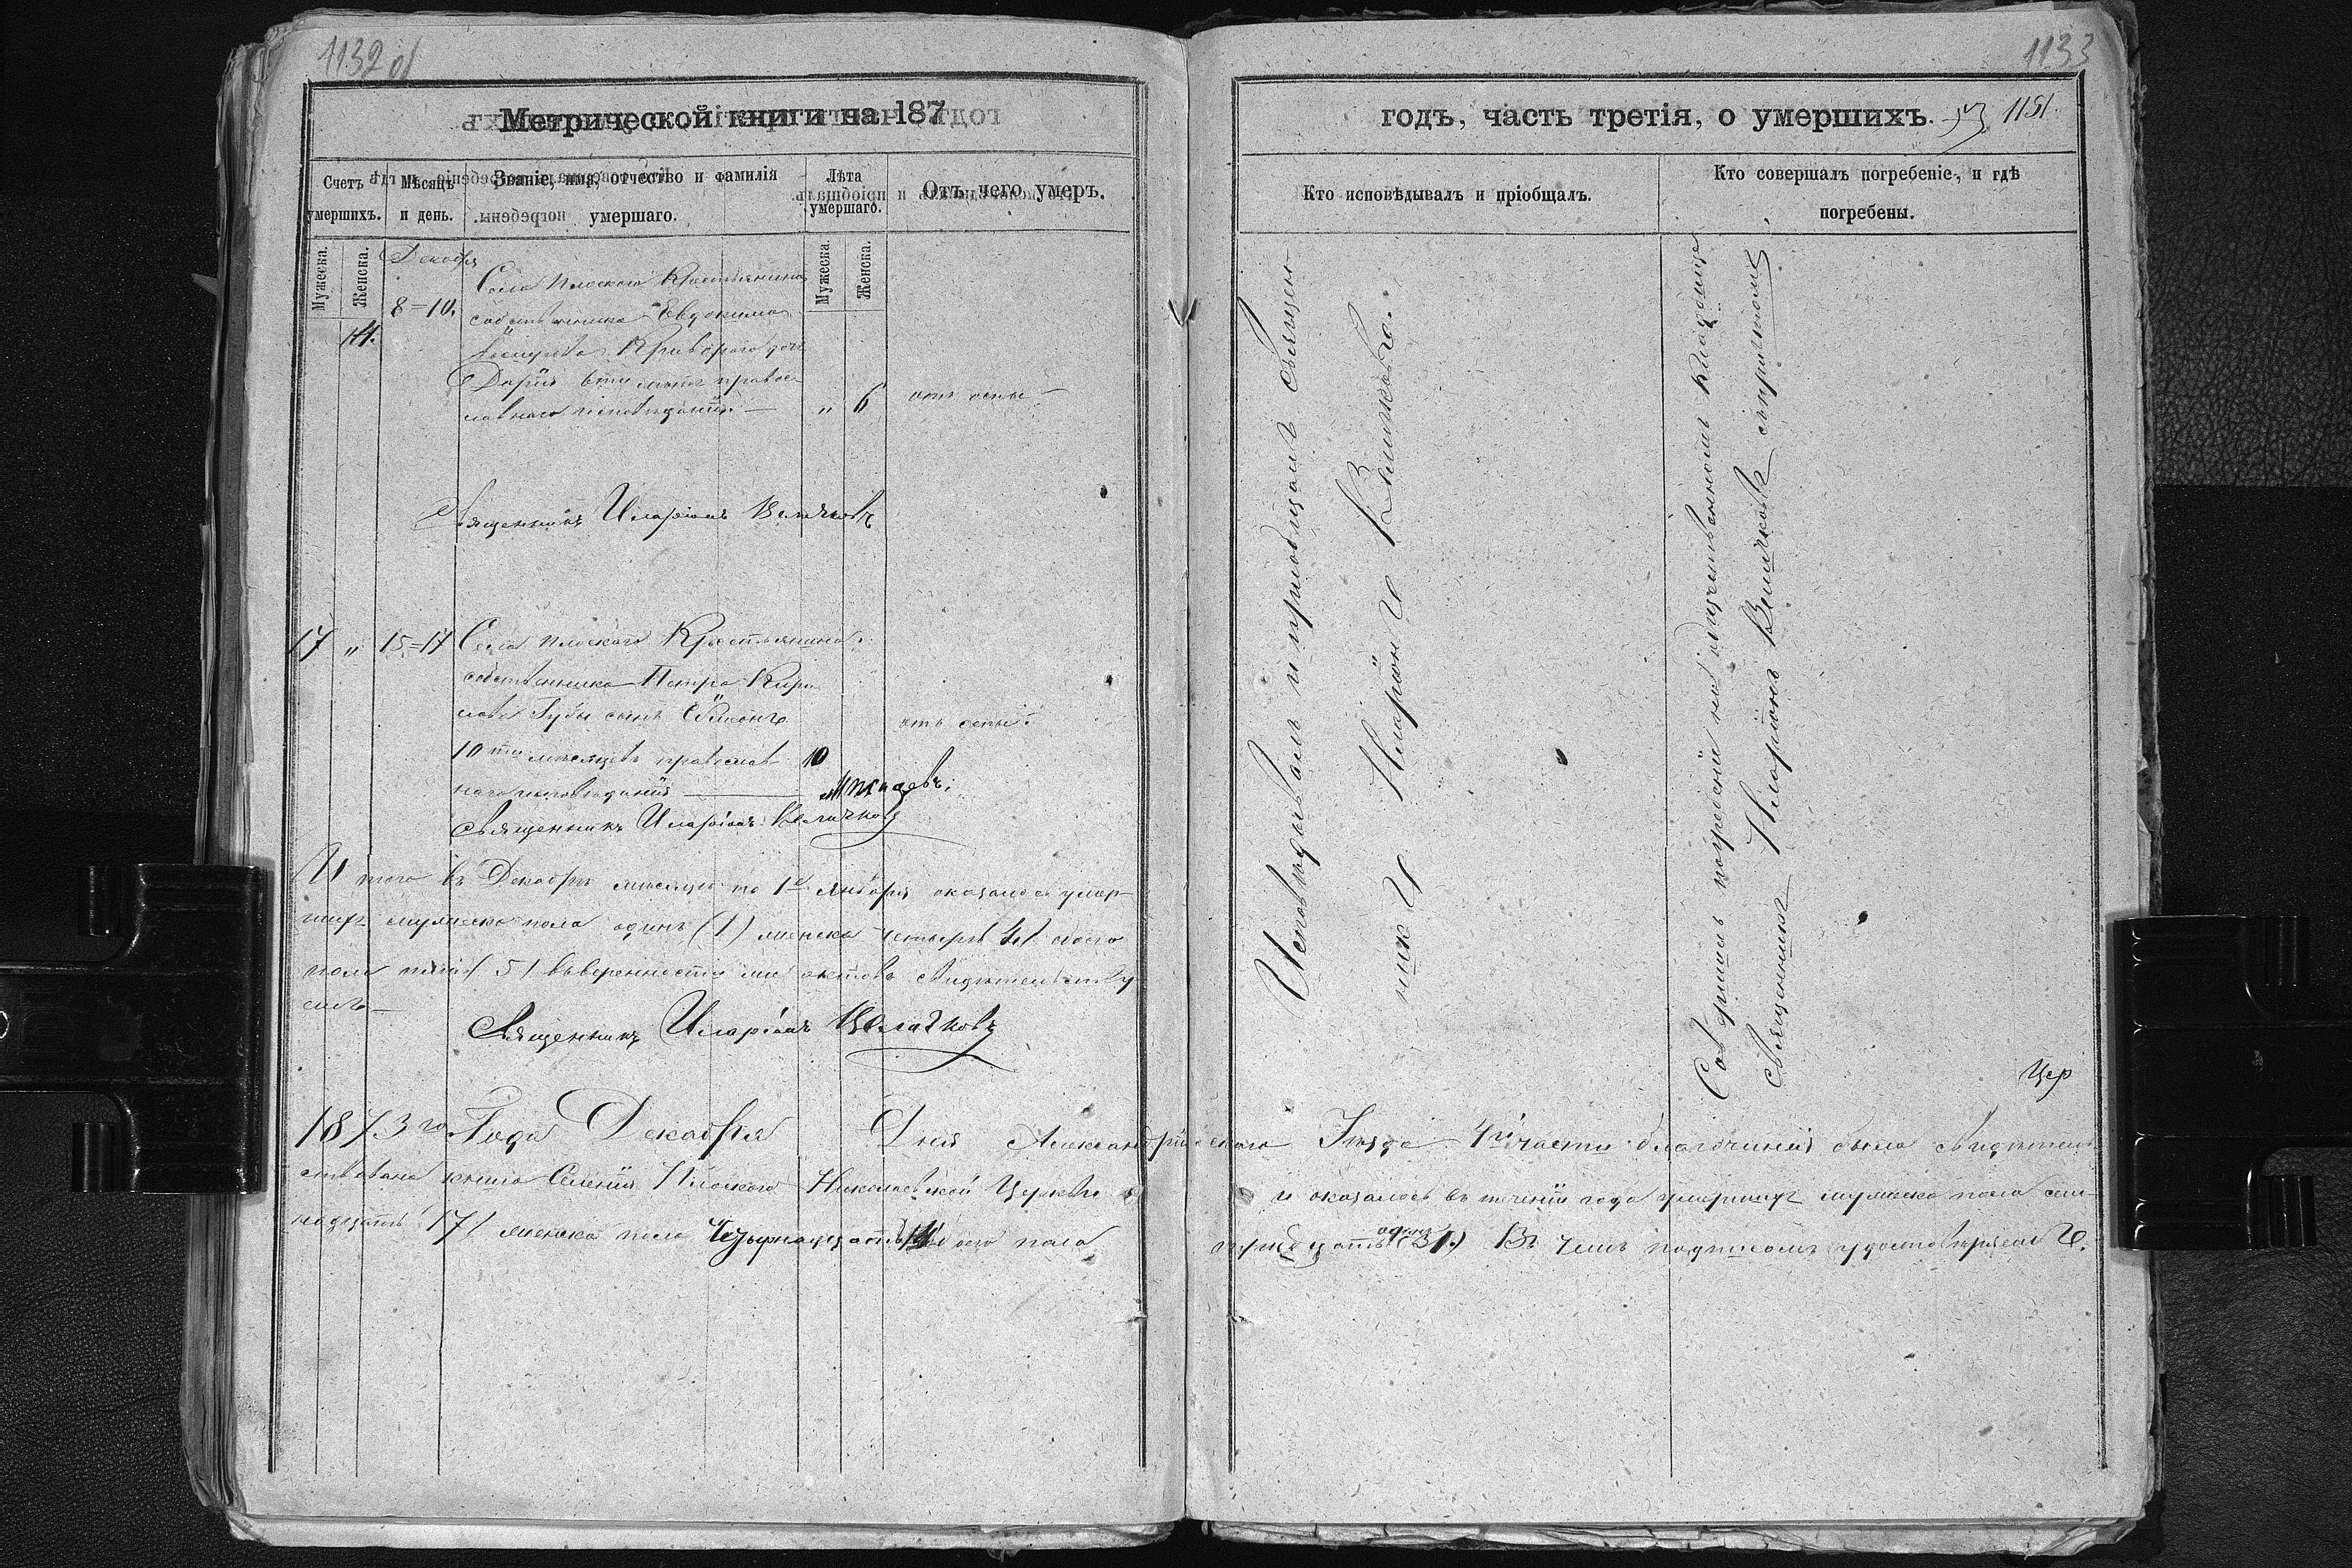 1132 об
Метрической книги на 187
Счетъ умершихъ.
Мужеска.
Женска.
Мѣсяцъ и день.
Званіе, имя, отчество и фамилія умершаго.
Лѣта умершаго.
Мужеска.
Женска.
Отъ чего умеръ.
Декабря
14.
8=10.
Села Плоского Крестьянина
собственника Евдокима
Криворога доч
Дарія 6ти лѣтъ правос
лавнаго исповѣданія —
„ 6
отъ оспы —
Священникъ Иларіонъ Величковъ
17 „ 15=17
Села Плоского Крестьянина
собственника Петра Кири
лова Губы сынъ Симеонъ
10ти мѣсяцевъ православ
наго исповѣданія —
10
Мѣсяцевъ.
отъ оспы.
Священникъ Иларіонъ Величковъ
Итого въ Декабрѣ мѣсяцѣ по 1е Января оказалось умер
шихъ мужеска пола одинъ (1) женска четыре 4. обоего
пола пять (5) въ верности актовъ свидѣтельству
емъ —
Священникъ Иларіонъ Величковъ
1133
1151.
годъ, часть третія, о умершихъ.
Кто исповѣдывалъ и пріобщалъ.
Кто совершалъ погребеніе, и гдѣ погребены.
Исповѣдывалъ и пріобщалъ Священ-
никъ Иларіонъ Величковъ.
Совершилъ погребеніе на общественномъ кладбищѣ
Священникъ Иларіонъ Величковъ с причтомъ
Цер
1873го Года Декабря Дня Александрійского Уѣзда 4й части благочинія была свидѣтель
ствована книга Селенія Плоского Николаевской Церкви и оказалось въ теченіи года умершихъ мужеска пола сем-
надцать 17/ женска пола Четырнадцать 14 обоего пола тридцать одинъ (31.) Въ чемъ подписомъ удостовѣряемъ.